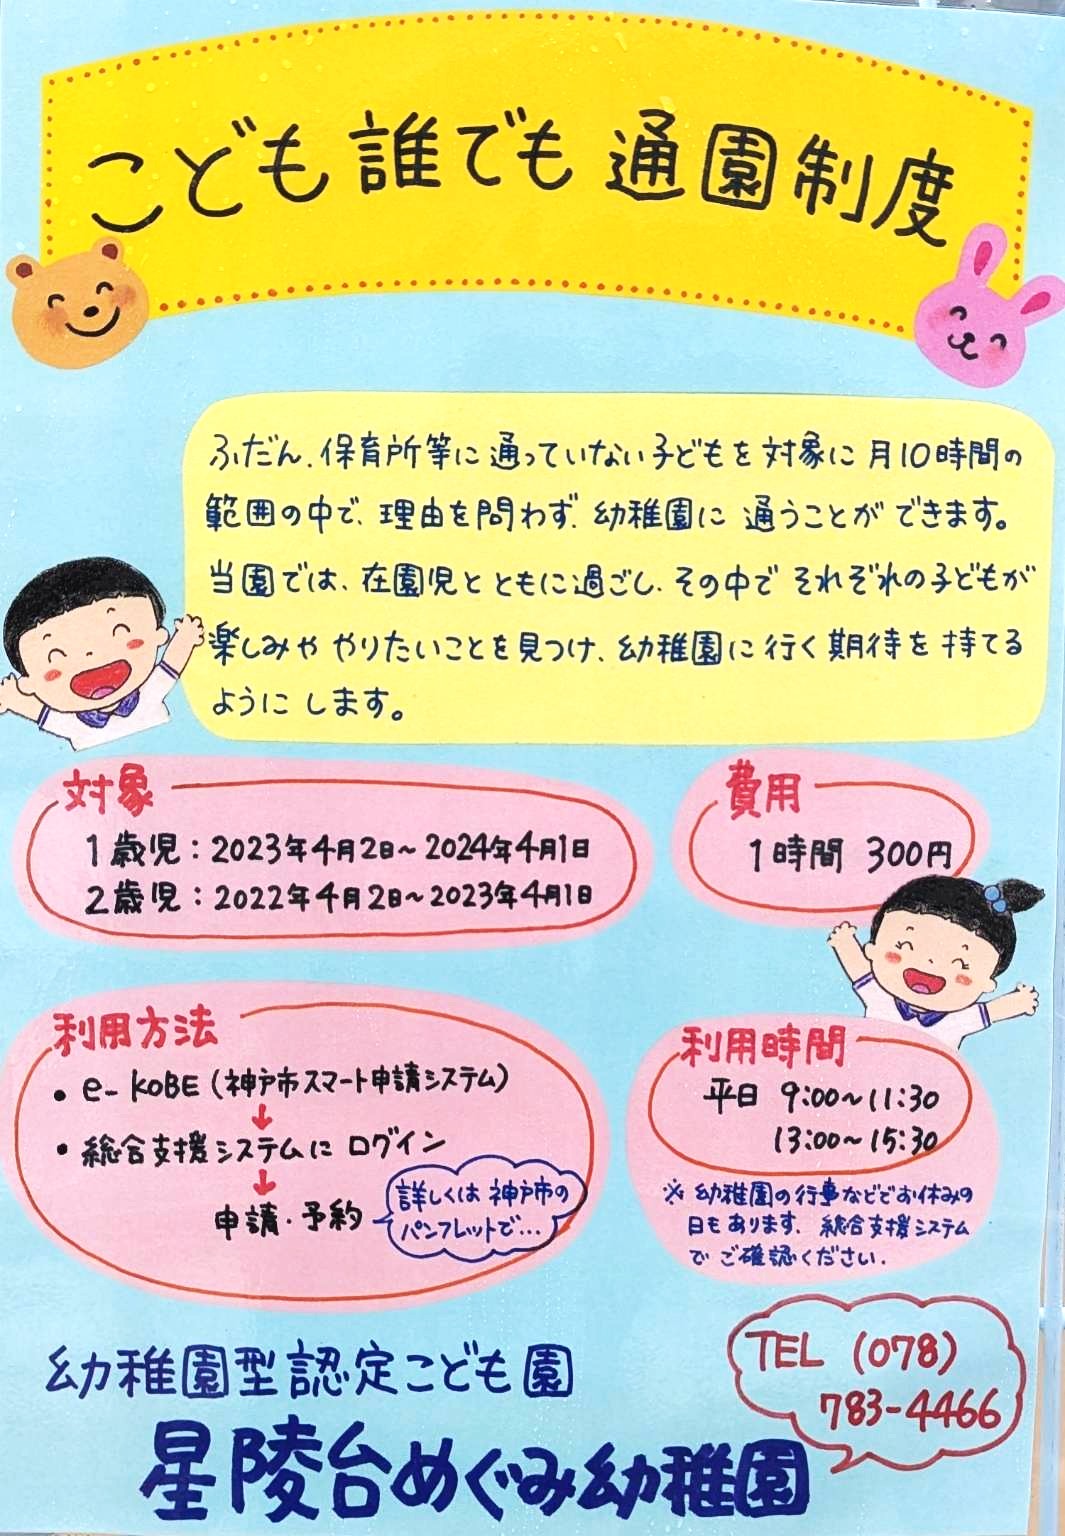 こども誰でも通園制度
ふだん、保育所等に通っていない子どもを対象に月10時間の
範囲の中で、理由を問わず、幼稚園に通うことができます。
当園では、在園児とともに過ごし、その中でそれぞれの子どもが
楽しみややりたいことを見つけ、幼稚園に行く期待を持てる
ようにします。
対象
1歳児：2023年4月2日～2024年4月1日
2歳児：2022年4月2日～2023年4月1日
費用
1時間 300円
利用方法
・e-KOBE（神戸市スマート申請システム）
↓
・総合支援システムに ログイン
↓
申請・予約
詳しくは神戸市の
パンフレットで…
利用時間
平日 9:00～11:30
13:00～15:30
※幼稚園の行事などでお休みの
日もあります。総合支援システム
でご確認ください。
幼稚園型認定こども園
星陵台めぐみ幼稚園
TEL (078)
783-4466